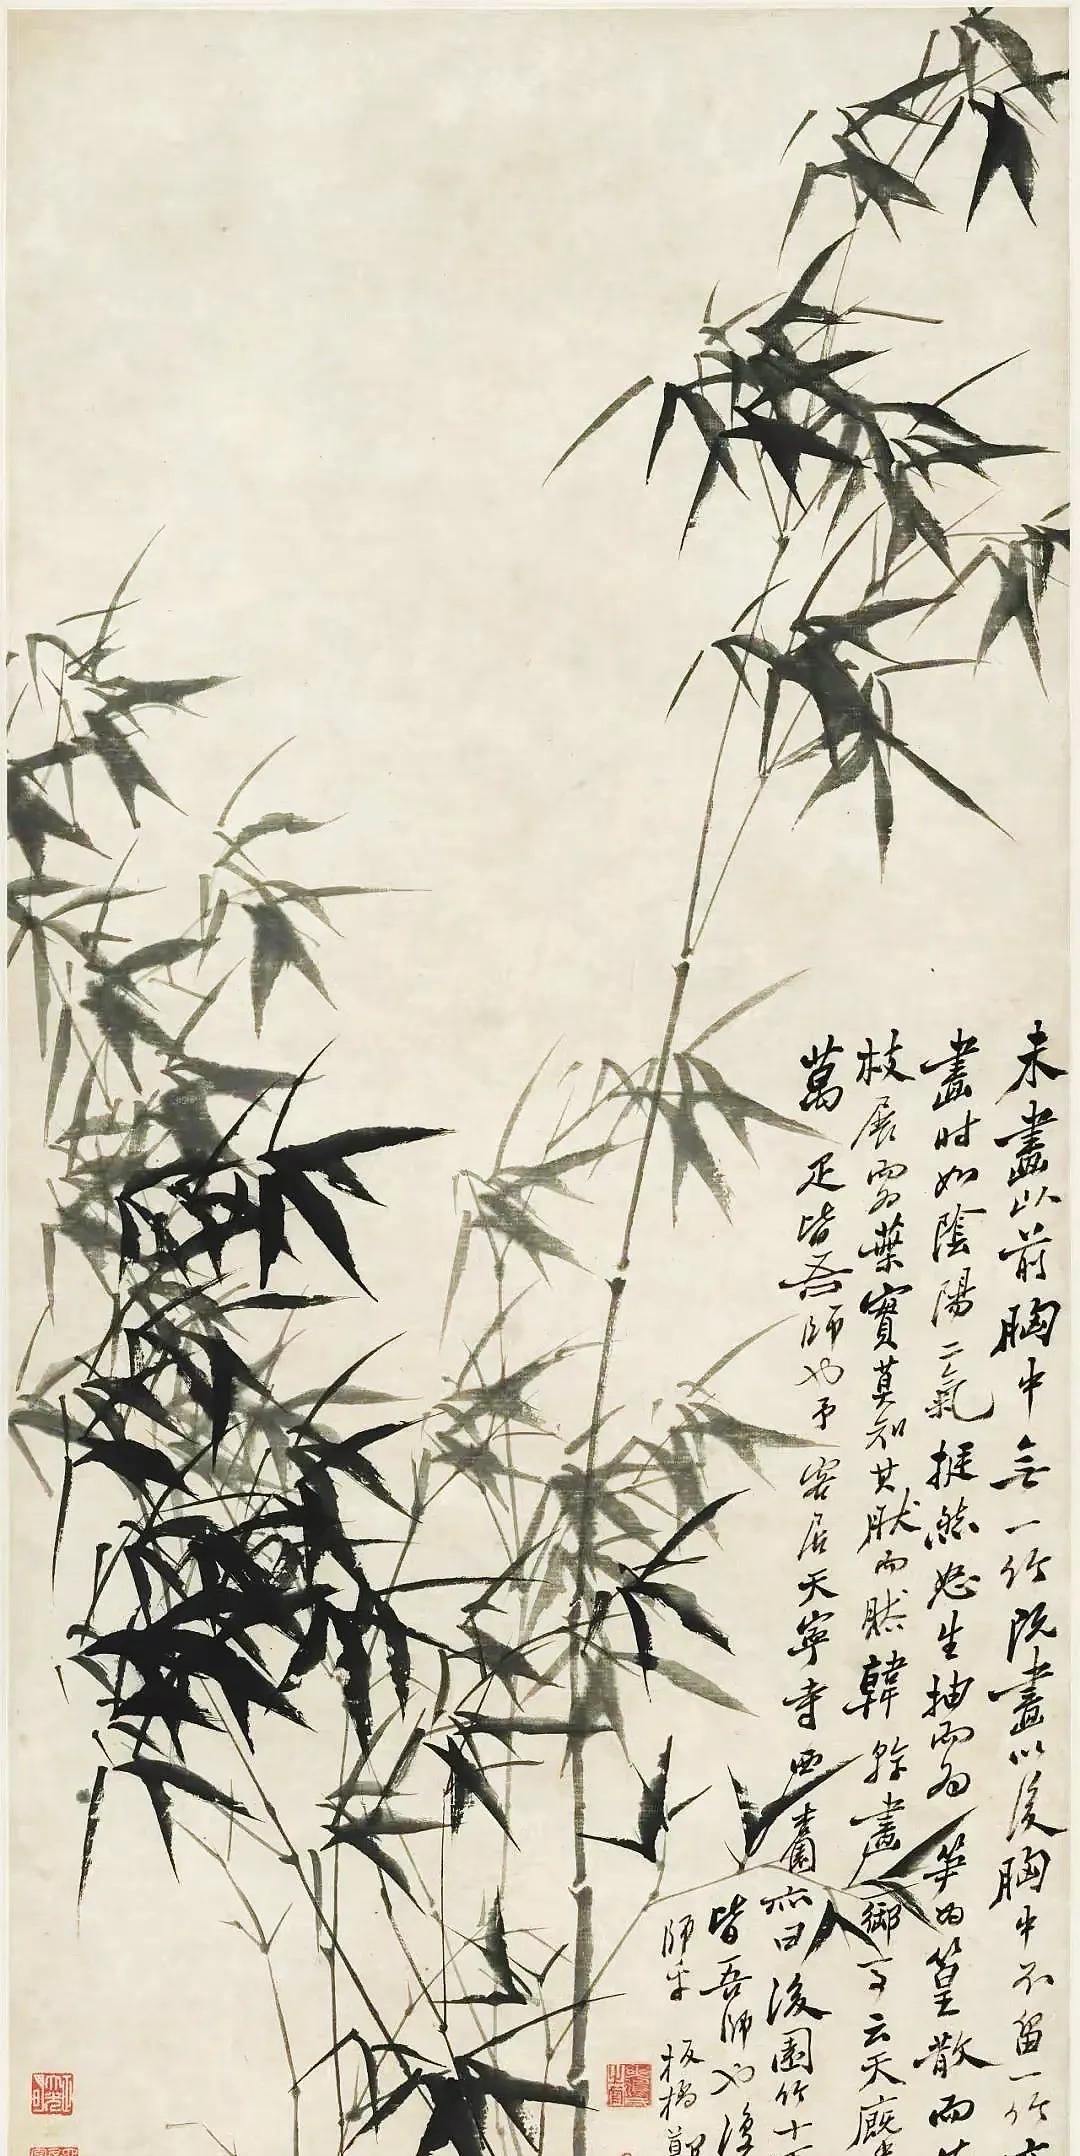 未畫以前胸中无一竹既畫以後胸中不留一竹
畫時如陰陽二氣挺然怒生抽而為笋為篁散而
枝展而為葉實莫知其然而然韓幹畫御馬云天廄
萬疋皆吾師也予客居天寧寺西杏園亦曰後園竹十
皆吾師也復
師乎 板橋鄭